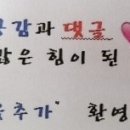 공감과 댓글
많은 힘이 된
추가" 환영